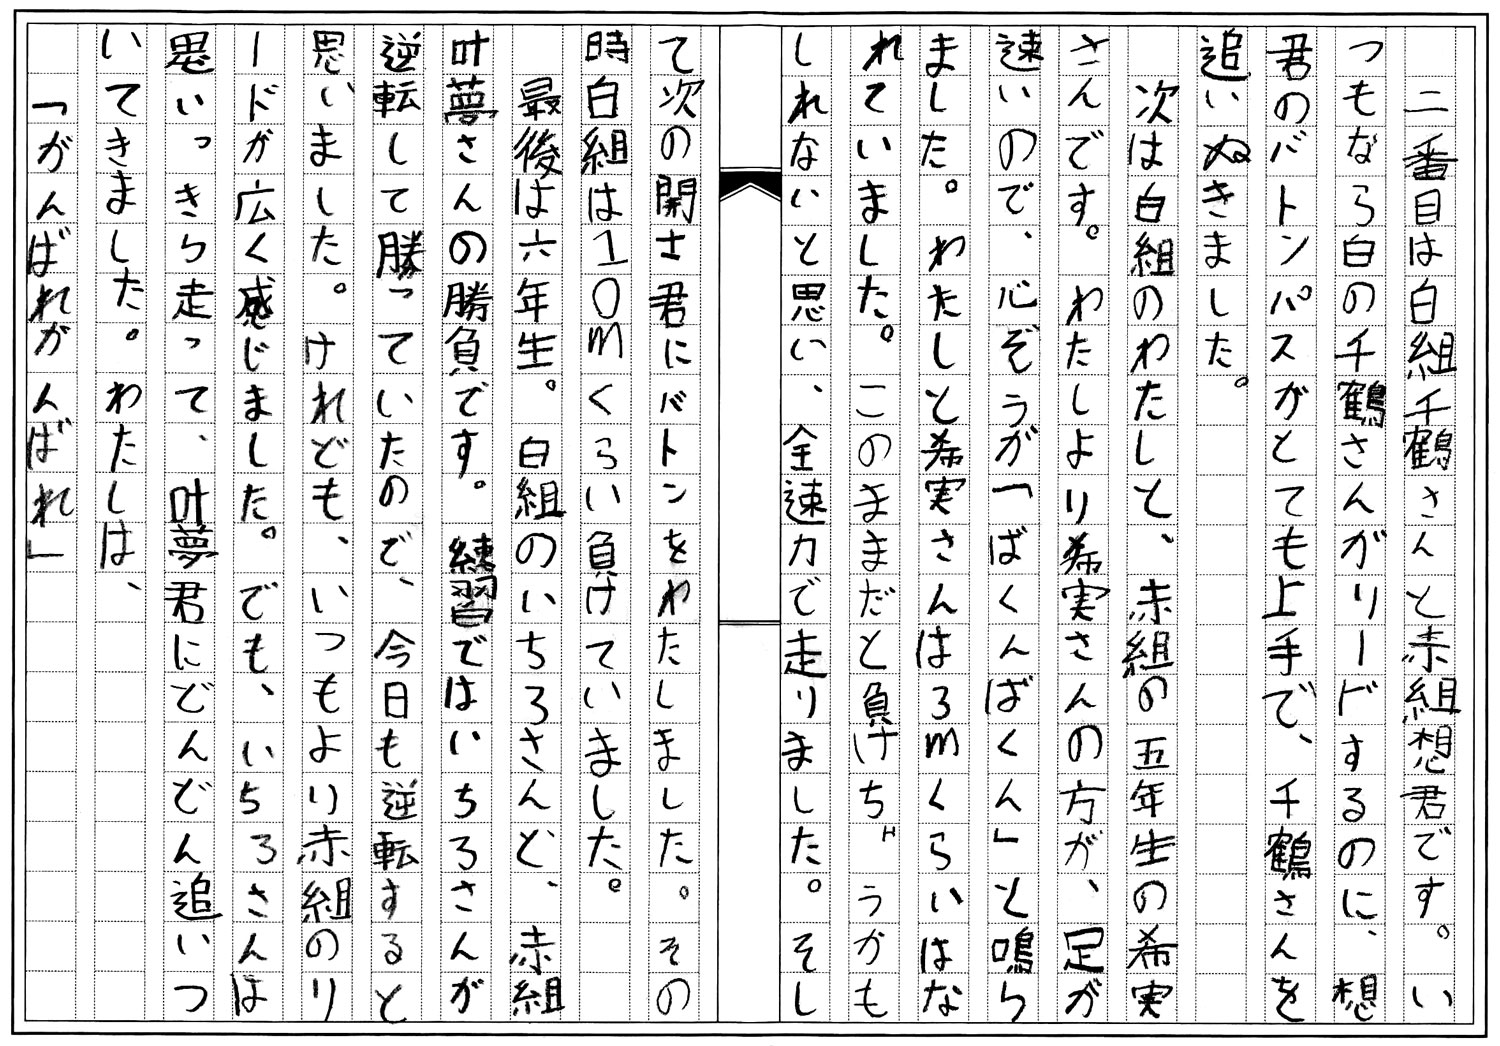 二番目は白組千鶴さんと赤組想君です。い
つもなら白の千鶴さんがリードするのに、想
君のバトンパスがとても上手で、千鶴さんを
追いぬきました。
次は白組のわたしと、赤組の五年生の希実
さんです。わたしより希実さんの方が、足が
速いので、心ぞうが「ばくんばくん」と鳴ら
ました。わたしと希実さんは3mくらいはな
れていました。このままだと負けぢゔかも
しれないと思い、全速力で走りました。そし
て次の開さ君にバトンをわたしました。その
時白組は10mくらい負けていました。
最後は六年生。白組のいちろさんと、赤組
叶夢さんの勝負です。練習ではいちろさんが
逆転して勝っていたので、今日も逆転すると
思いました。けれども、いつもより赤組のリ
ードが広く感じました。でも、いちろさんは
思いっきら走って、叶夢君にどんどん追いつ
いてきました。わたしは、
「がんばれがんばれ」